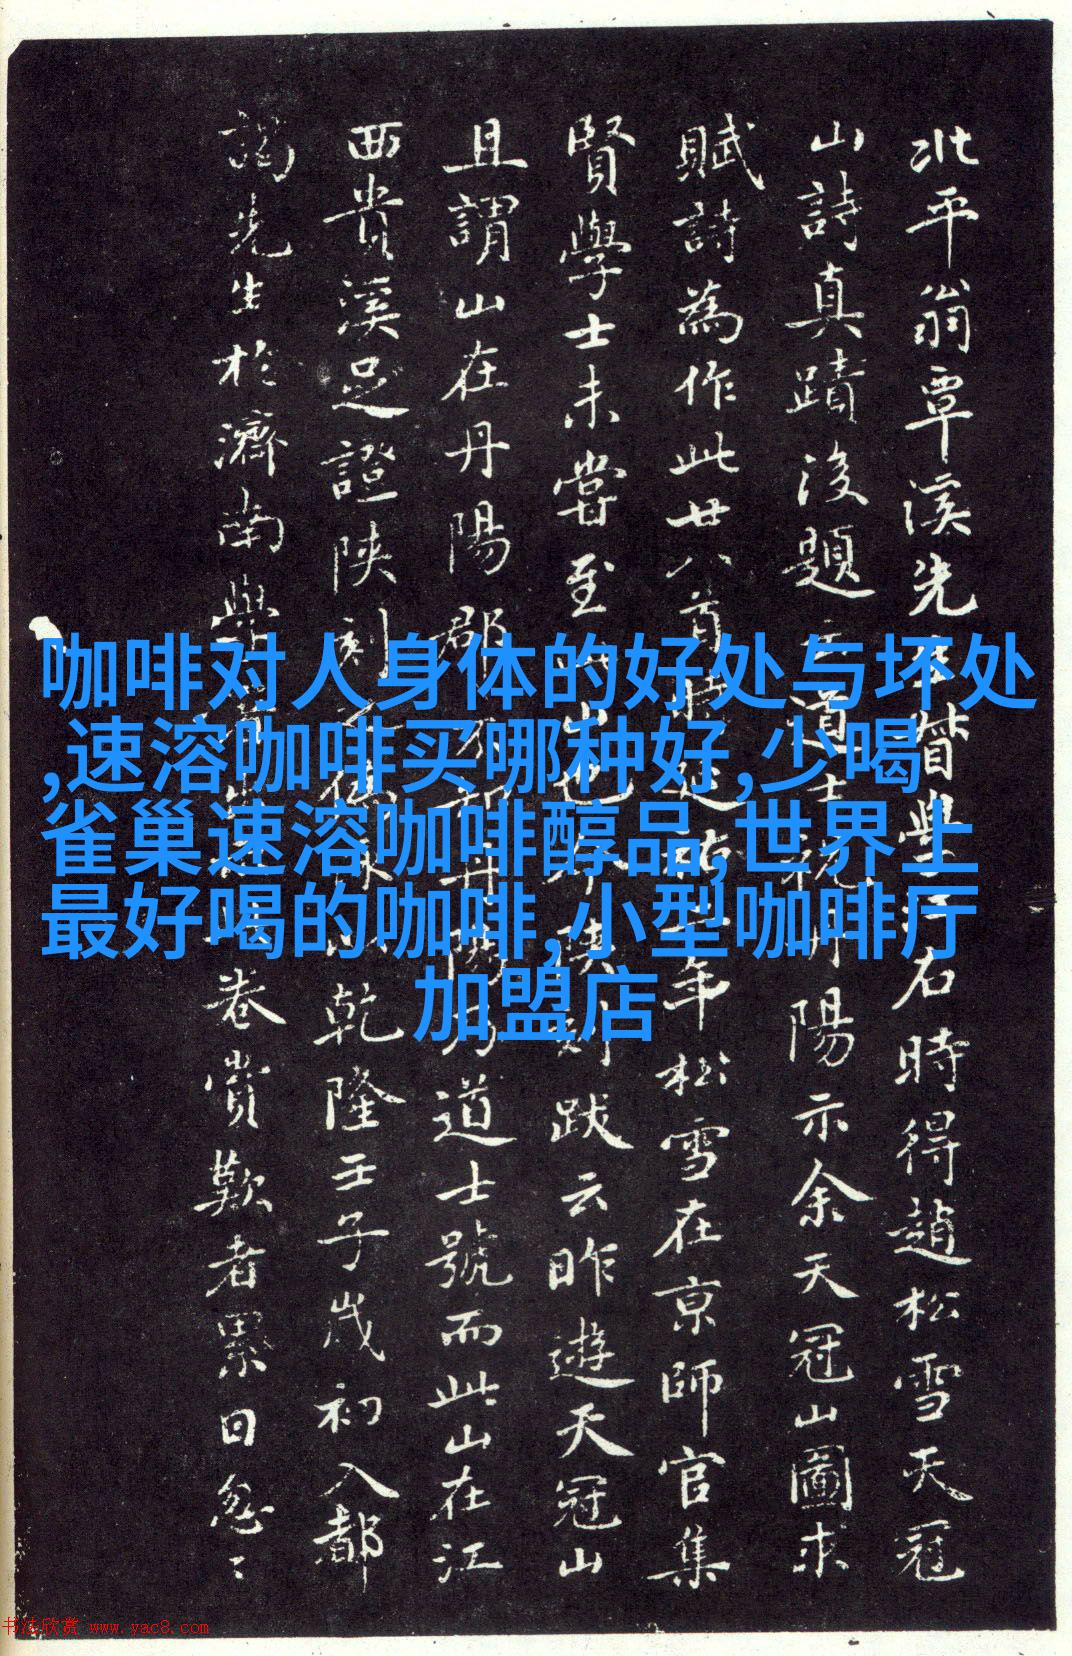 北平翁覃溪先生督學江右時得趙松雪天冠
山詩真蹟後題云道士祝丹陽示余天冠山圖求
賦詩為作此廿八首是延祐二年松雪在京師官集
賢學士未嘗至此山也而陝刻跋云昨遊天冠山
且謂山在丹陽郡
道士號而此山在江
西貴溪足證陝刻
乾隆壬子歲初入都
謁先生於濟南學
卷賞歎者累日忽〻
咖啡对人身体的好处与坏处
,速溶咖啡买哪种好,少喝
雀巢速溶咖啡醇品,世界上
最好喝的咖啡,小型咖啡厅
加盟店
书法欣赏 www.yac8.com